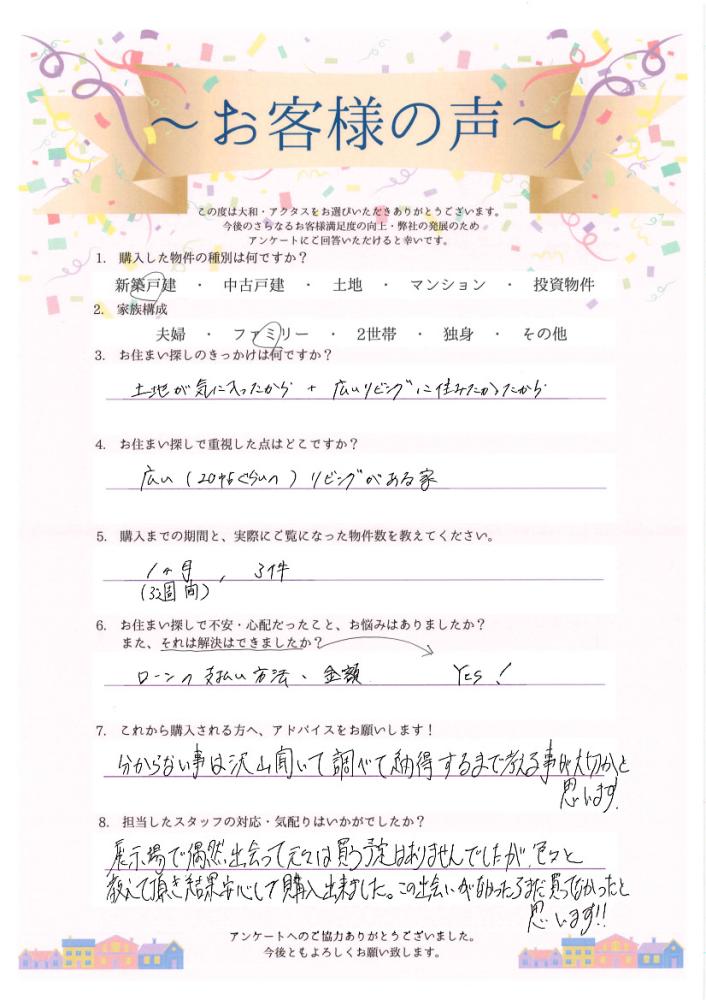 ～お客様の声～
この度は大和・アクタスをお選びいただきありがとうございます。
今後のさらなるお客様満足度の向上・弊社の発展のため
アンケートにご回答いただけると幸いです。
1. 購入した物件の種別は何ですか？
新築戸建 ・ 中古戸建 ・ 土地 ・ マンション ・ 投資物件
2. 家族構成
夫婦 ・ ファミリー ・ 2世帯 ・ 独身 ・ その他
3. お住まい探しのきっかけは何ですか？
土地が気に入ったから + 広いリビングに住みたかったから
4. お住まい探しで重視した点はどこですか？
広い(20帖ぐらいの)リビングがある家
5. 購入までの期間と、実際にご覧になった物件数を教えてください。
1ヶ月, 3件
(3週間)
6. お住まい探しで不安・心配だったこと、お悩みはありましたか？
また、それは解決はできましたか？
ローンの支払い方法、金額 Yes!
7. これから購入される方へ、アドバイスをお願いします！
分からない事は沢山聞いて調べて納得するまで考える事が大切かと
思います。
8. 担当したスタッフの対応・気配りはいかがでしたか？
展示場で偶然出会って元々は買う予定はありませんでしたが、色々と
教えて頂き結果安心して購入出来ました。この出会いがなかったらまだ買ってなかったと
思います!!
アンケートへのご協力ありがとうございました。
今後ともよろしくお願い致します。